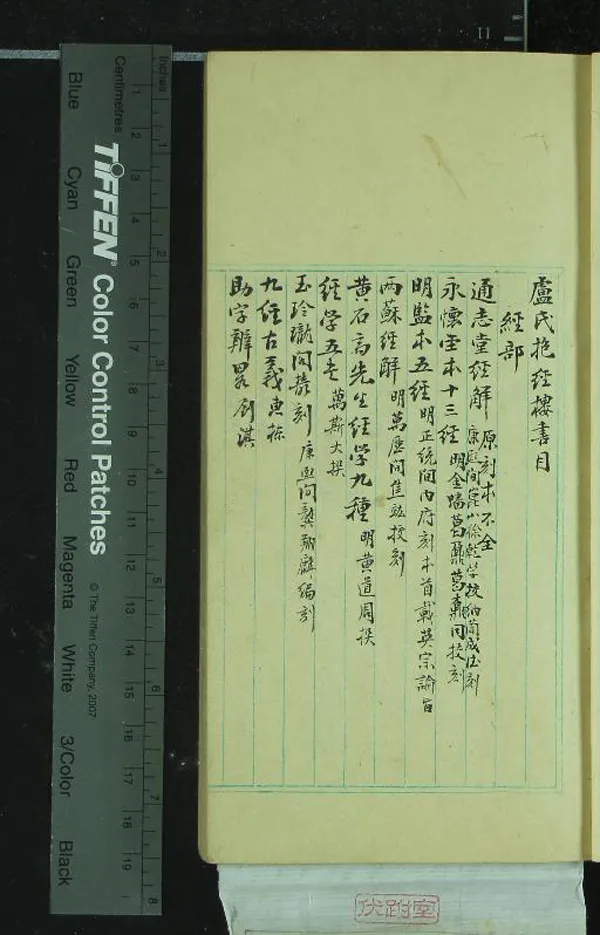 盧氏抱經樓書目
經部
通志堂經解 原刻本不全 康熙間崑山徐乾學校納蘭成德刻
永懷堂本十三經 明金蟠葛鼒葛鼏同校刻
明監本五經 明正統間內府刻本首載英宗諭旨
兩蘇經解 明萬曆間焦竑校刻
黃石高先生經學九種 明黃道周撰
經學五書 萬斯大撰
玉玲瓏閣叢刻 康熙間龔翔麟編刻
九經古義 惠棟
助字辨畧 劉淇
伏跗室
TIFFEN® Color Control Patches
© The Tiffen Company, 2007
Inches
1 2 3 4 5 6 7 8
Centimetres
1 2 3 4 5 6 7 8 9 10 11 12 13 14 15 16 17 18 19
Blue Cyan Green Yellow Red Magenta White 3/Color Black
11